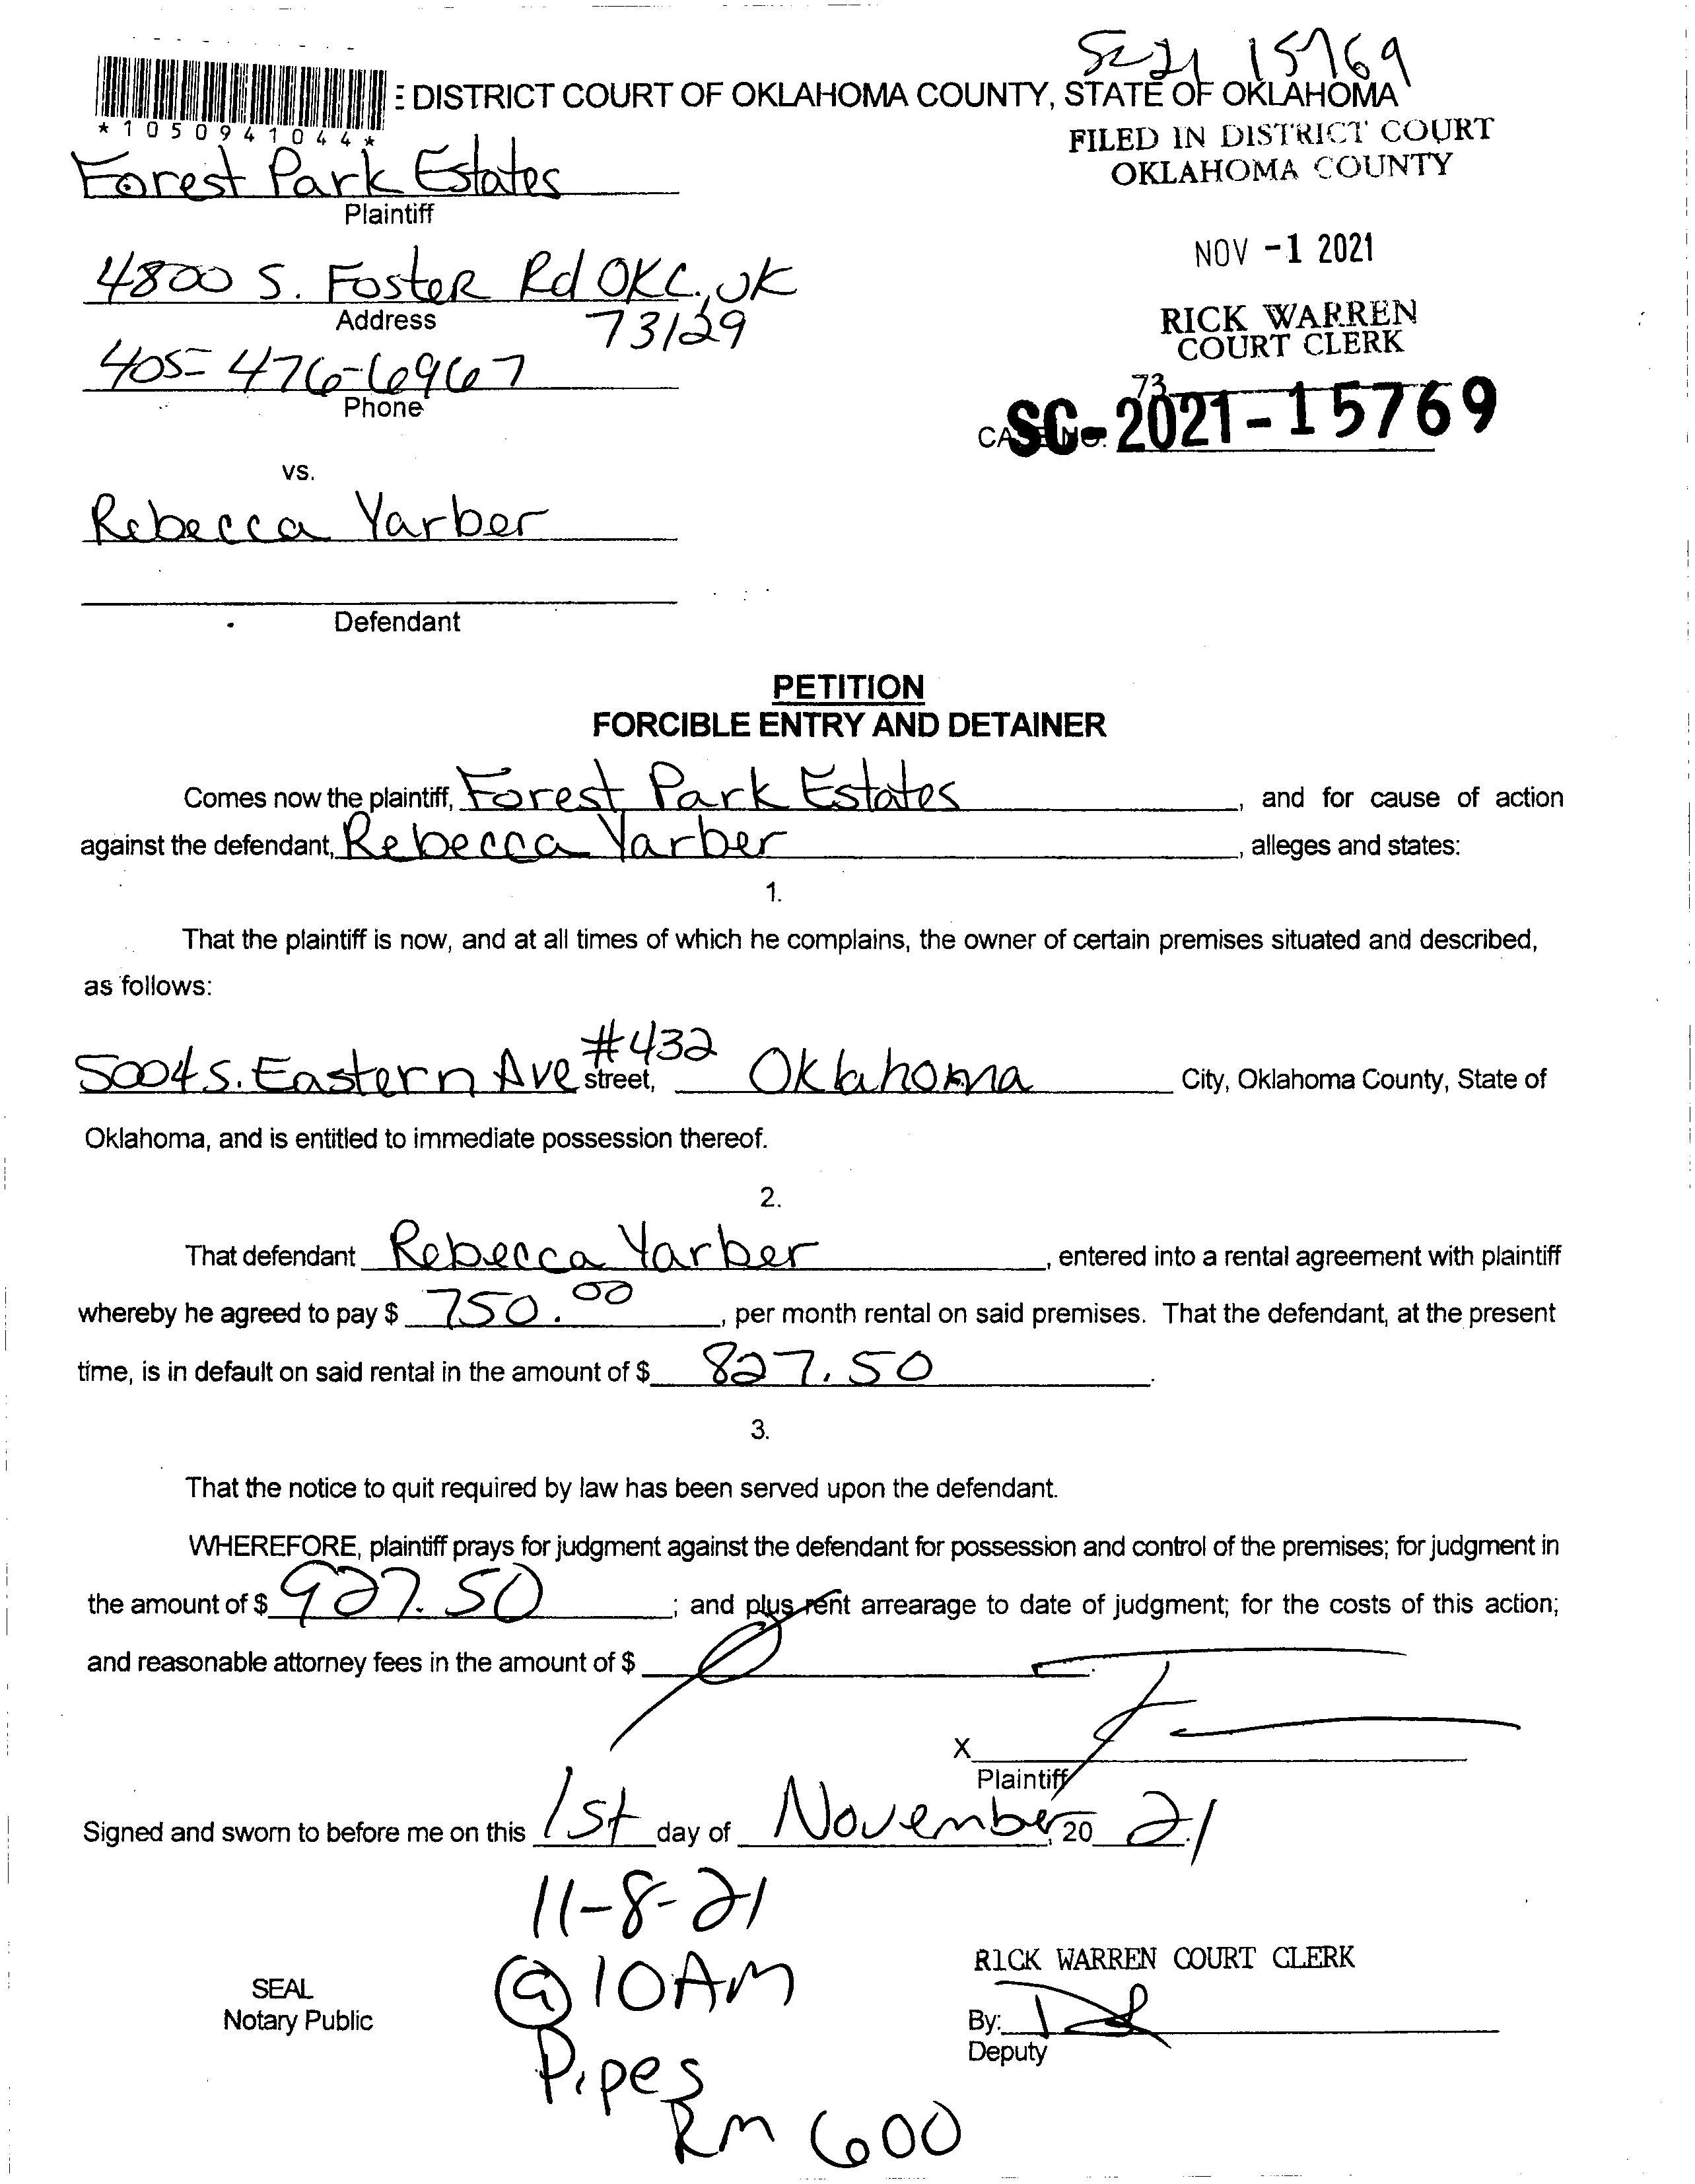 SC21 15769
DISTRICT COURT OF OKLAHOMA COUNTY, STATE OF OKLAHOMA
*1050941044*
FILED IN DISTRICT COURT
OKLAHOMA COUNTY
Forest Park Estates
Plaintiff
NOV -1 2021
4800 S. Foster Rd OKC, OK
Address
73129
RICK WARREN
COURT CLERK
405-476-6967
Phone
73
CASE NO. SC-2021-15769
vs.
Rebecca Yarber
Defendant
PETITION
FORCIBLE ENTRY AND DETAINER
Comes now the plaintiff, Forest Park Estates, and for cause of action
against the defendant, Rebecca Yarber, alleges and states:
1.
That the plaintiff is now, and at all times of which he complains, the owner of certain premises situated and described,
as follows:
5004 S. Eastern Ave #432 street, Oklahoma City, Oklahoma County, State of
Oklahoma, and is entitled to immediate possession thereof.
2.
That defendant Rebecca Yarber, entered into a rental agreement with plaintiff
whereby he agreed to pay $ 750.00, per month rental on said premises. That the defendant, at the present
time, is in default on said rental in the amount of $ 827.50.
3.
That the notice to quit required by law has been served upon the defendant.
WHEREFORE, plaintiff prays for judgment against the defendant for possession and control of the premises; for judgment in
the amount of $ 927.50; and plus rent arrearage to date of judgment; for the costs of this action;
and reasonable attorney fees in the amount of $ 0.
X
Plaintiff
Signed and sworn to before me on this 1st day of November, 20 21.
11-8-21
@ 10AM
RICK WARREN COURT CLERK
SEAL
Notary Public
By:
Deputy
Pipes
Rm 600